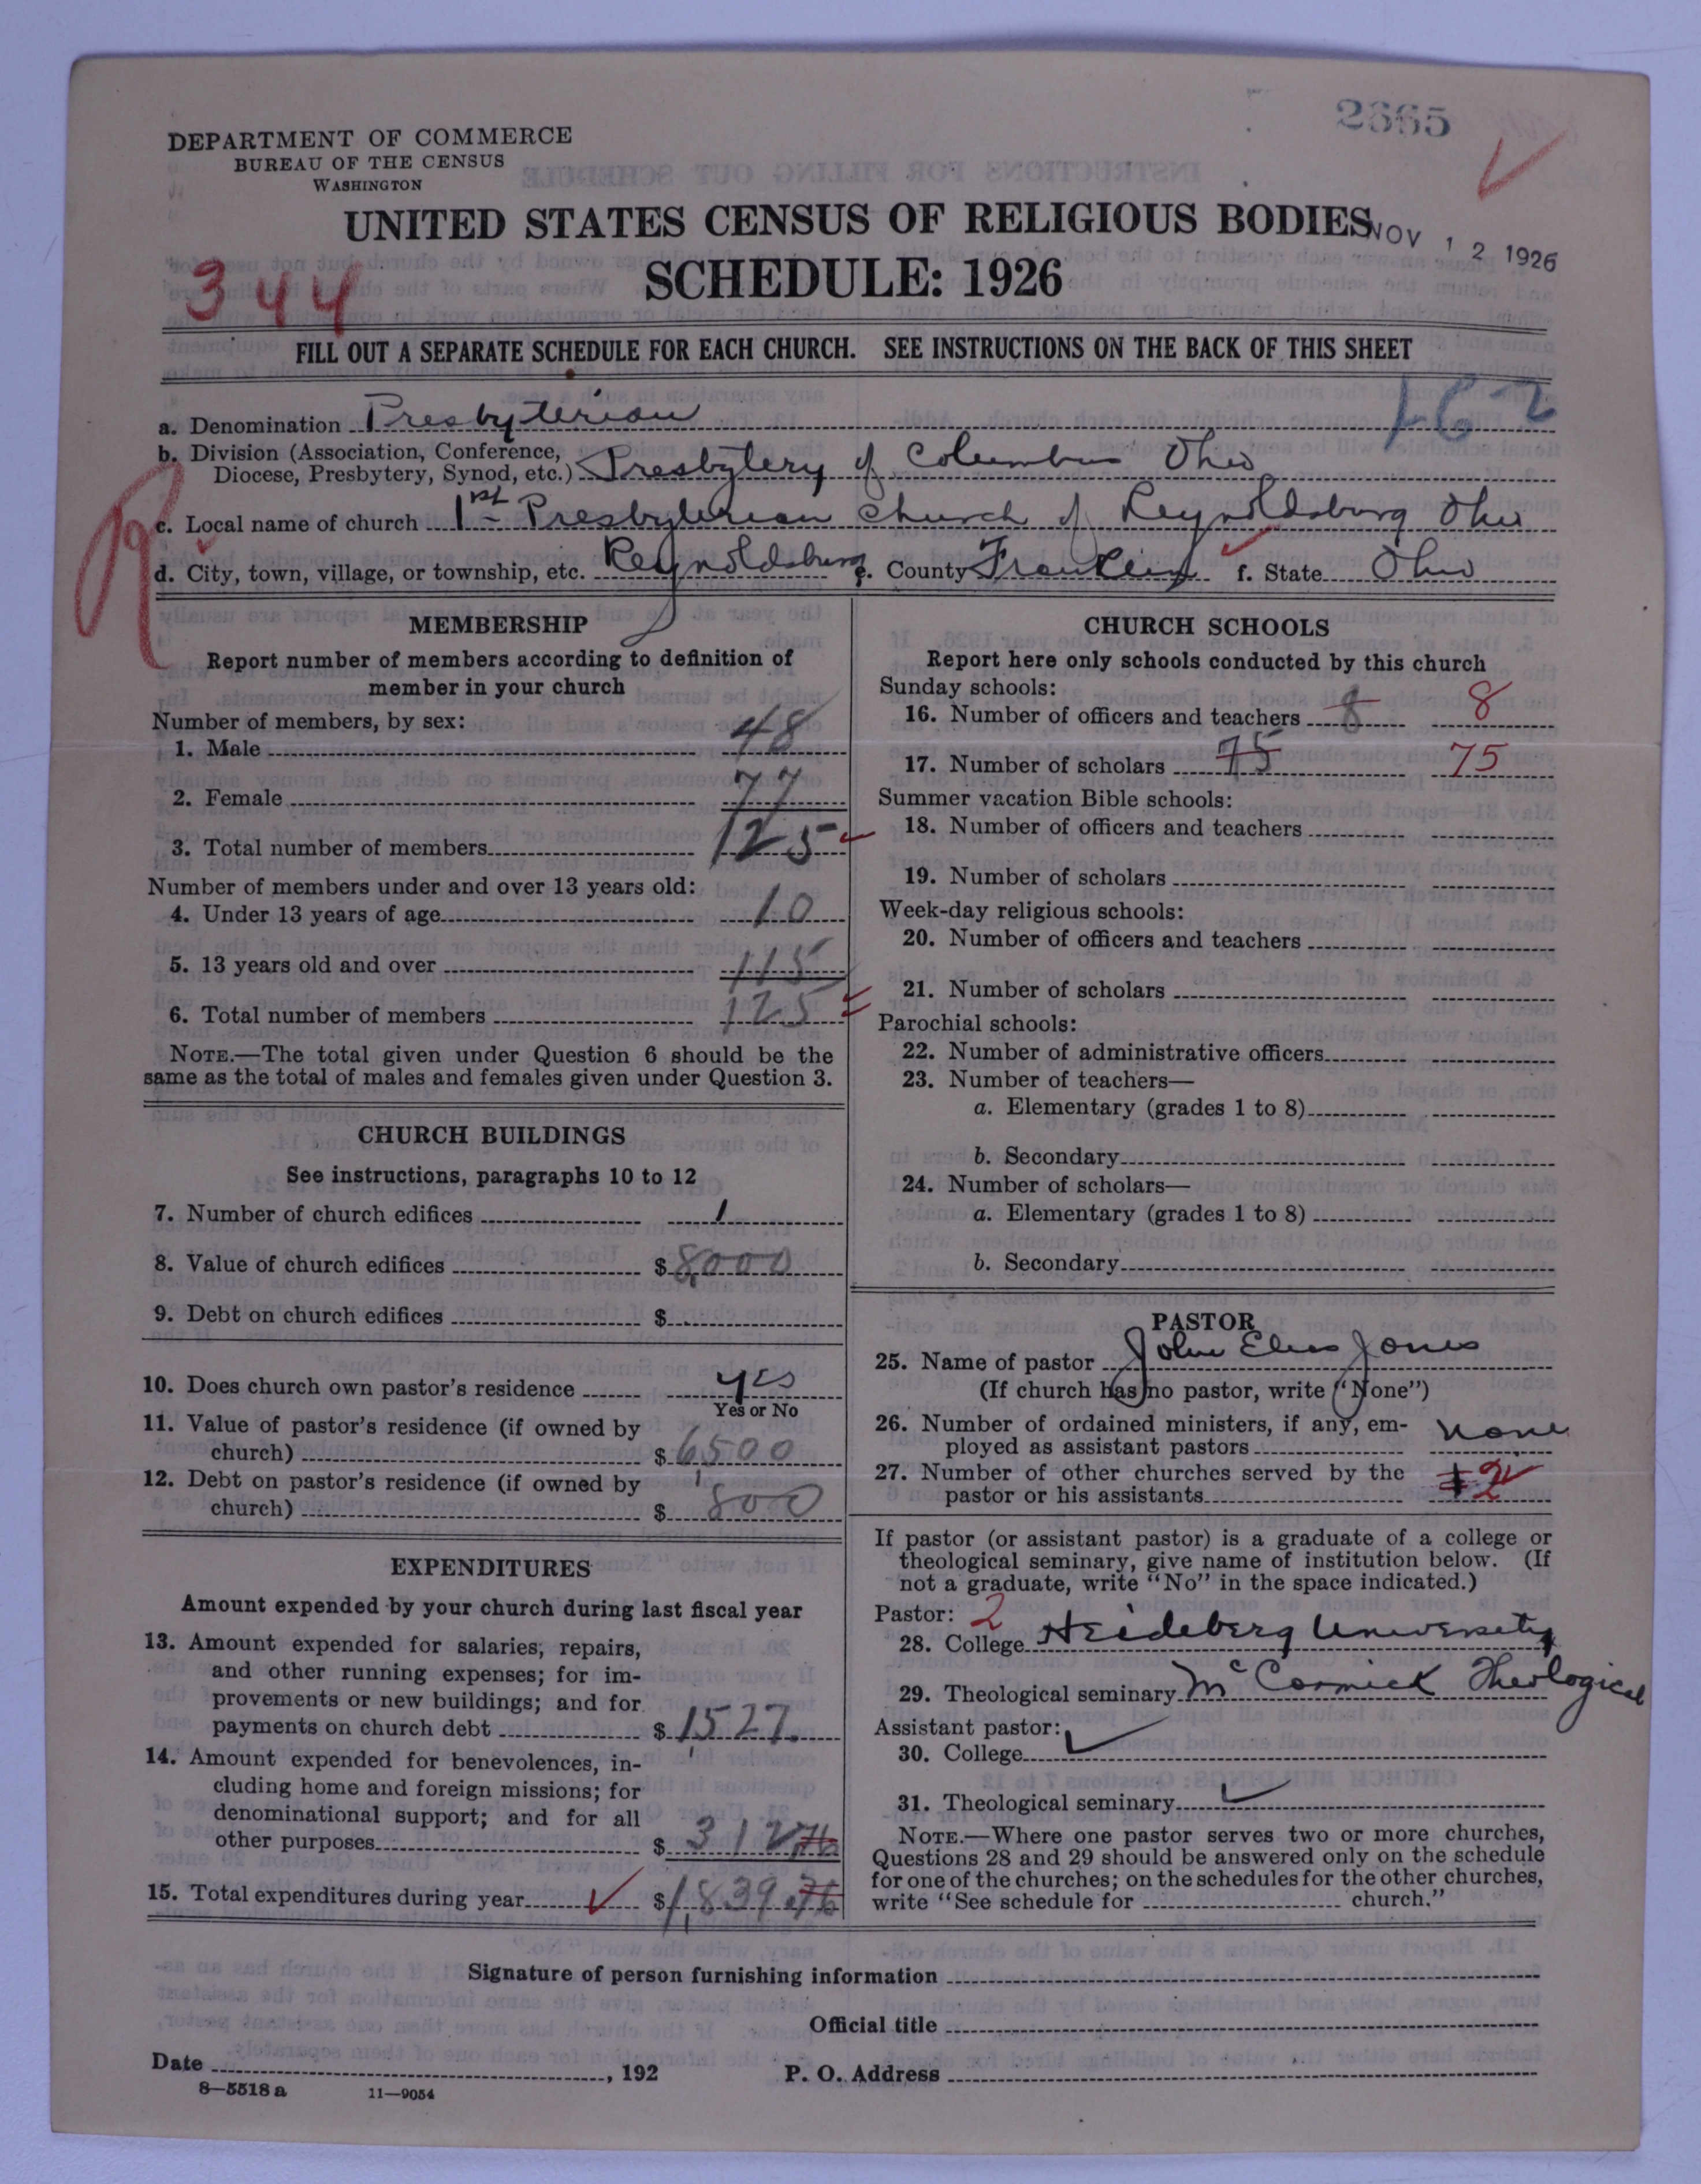 2665
DEPARTMENT OF COMMERCE
BUREAU OF THE CENSUS
WASHINGTON
UNITED STATES CENSUS OF RELIGIOUS BODIES
NOV 12 1926
SCHEDULE: 1926
344
FILL OUT A SEPARATE SCHEDULE FOR EACH CHURCH. SEE INSTRUCTIONS ON THE BACK OF THIS SHEET
162
a. Denomination Presbyterian
b. Division (Association, Conference,
Diocese, Presbytery, Synod, etc.) Presbytery of Columbus Ohio
c. Local name of church 1st Presbyterian Church of Reynoldsburg Ohio
d. City, town, village, or township, etc. Reynoldsburg e. County Franklin f. State Ohio
MEMBERSHIP
Report number of members according to definition of
member in your church
Number of members, by sex:
1. Male 48
2. Female 77
3. Total number of members 125
Number of members under and over 13 years old:
4. Under 13 years of age 10
5. 13 years old and over 115
6. Total number of members 125
NOTE.—The total given under Question 6 should be the
same as the total of males and females given under Question 3.
CHURCH BUILDINGS
See instructions, paragraphs 10 to 12
7. Number of church edifices 1
8. Value of church edifices $ 8,000
9. Debt on church edifices $
10. Does church own pastor's residence yes
Yes or No
11. Value of pastor's residence (if owned by
church) $ 6,500
12. Debt on pastor's residence (if owned by
church) $ 800
EXPENDITURES
Amount expended by your church during last fiscal year
13. Amount expended for salaries, repairs,
and other running expenses; for im-
provements or new buildings; and for
payments on church debt $ 1,527.
14. Amount expended for benevolences, in-
cluding home and foreign missions; for
denominational support; and for all
other purposes $ 312 76
15. Total expenditures during year $ 1,839.76
CHURCH SCHOOLS
Report here only schools conducted by this church
Sunday schools:
16. Number of officers and teachers 8 8
17. Number of scholars 75 75
Summer vacation Bible schools:
18. Number of officers and teachers
19. Number of scholars
Week-day religious schools:
20. Number of officers and teachers
21. Number of scholars
Parochial schools:
22. Number of administrative officers
23. Number of teachers—
a. Elementary (grades 1 to 8)
b. Secondary
24. Number of scholars—
a. Elementary (grades 1 to 8)
b. Secondary
PASTOR
25. Name of pastor John Elias Jones
(If church has no pastor, write "None")
26. Number of ordained ministers, if any, em-
ployed as assistant pastors none
27. Number of other churches served by the
pastor or his assistants 2
If pastor (or assistant pastor) is a graduate of a college or
theological seminary, give name of institution below. (If
not a graduate, write "No" in the space indicated.)
Pastor: 2
28. College Heideberg University
29. Theological seminary McCormick Theological
Assistant pastor:
30. College
31. Theological seminary
NOTE.—Where one pastor serves two or more churches,
Questions 28 and 29 should be answered only on the schedule
for one of the churches; on the schedules for the other churches,
write "See schedule for church."
Signature of person furnishing information
Official title
Date , 192
P. O. Address
8—5518 a 11—9054